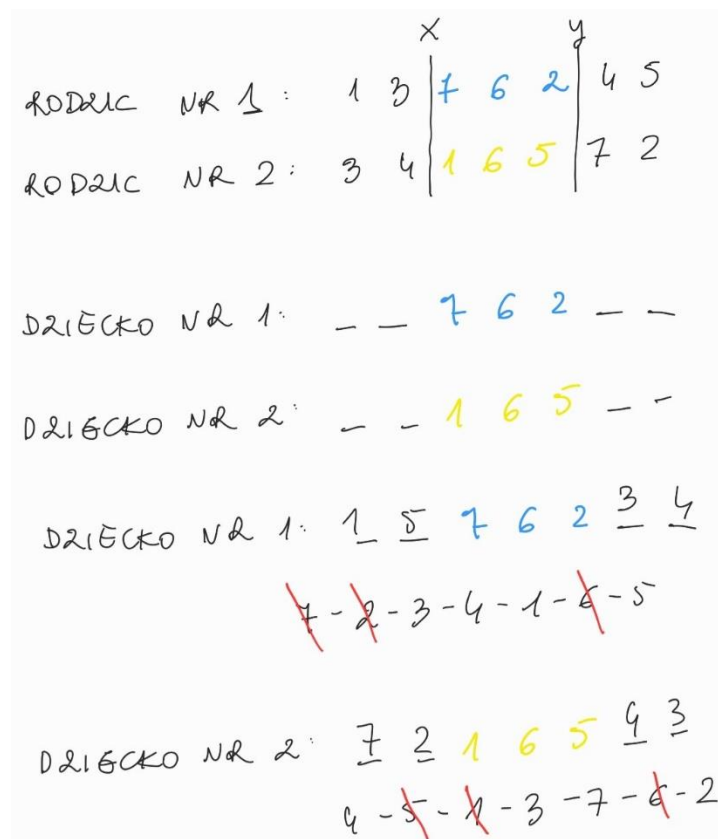 x y
RODZIC NR 1: 1 3 | 7 6 2 | 4 5
RODZIC NR 2: 3 4 | 1 6 5 | 7 2
DZIECKO NR 1: _ _ 7 6 2 _ _
DZIECKO NR 2: _ _ 1 6 5 _ _
DZIECKO NR 1: 1 5 7 6 2 3 4
7 - 2 - 3 - 4 - 1 - 6 - 5
DZIECKO NR 2: 7 2 1 6 5 4 3
4 - 5 - 1 - 3 - 7 - 6 - 2